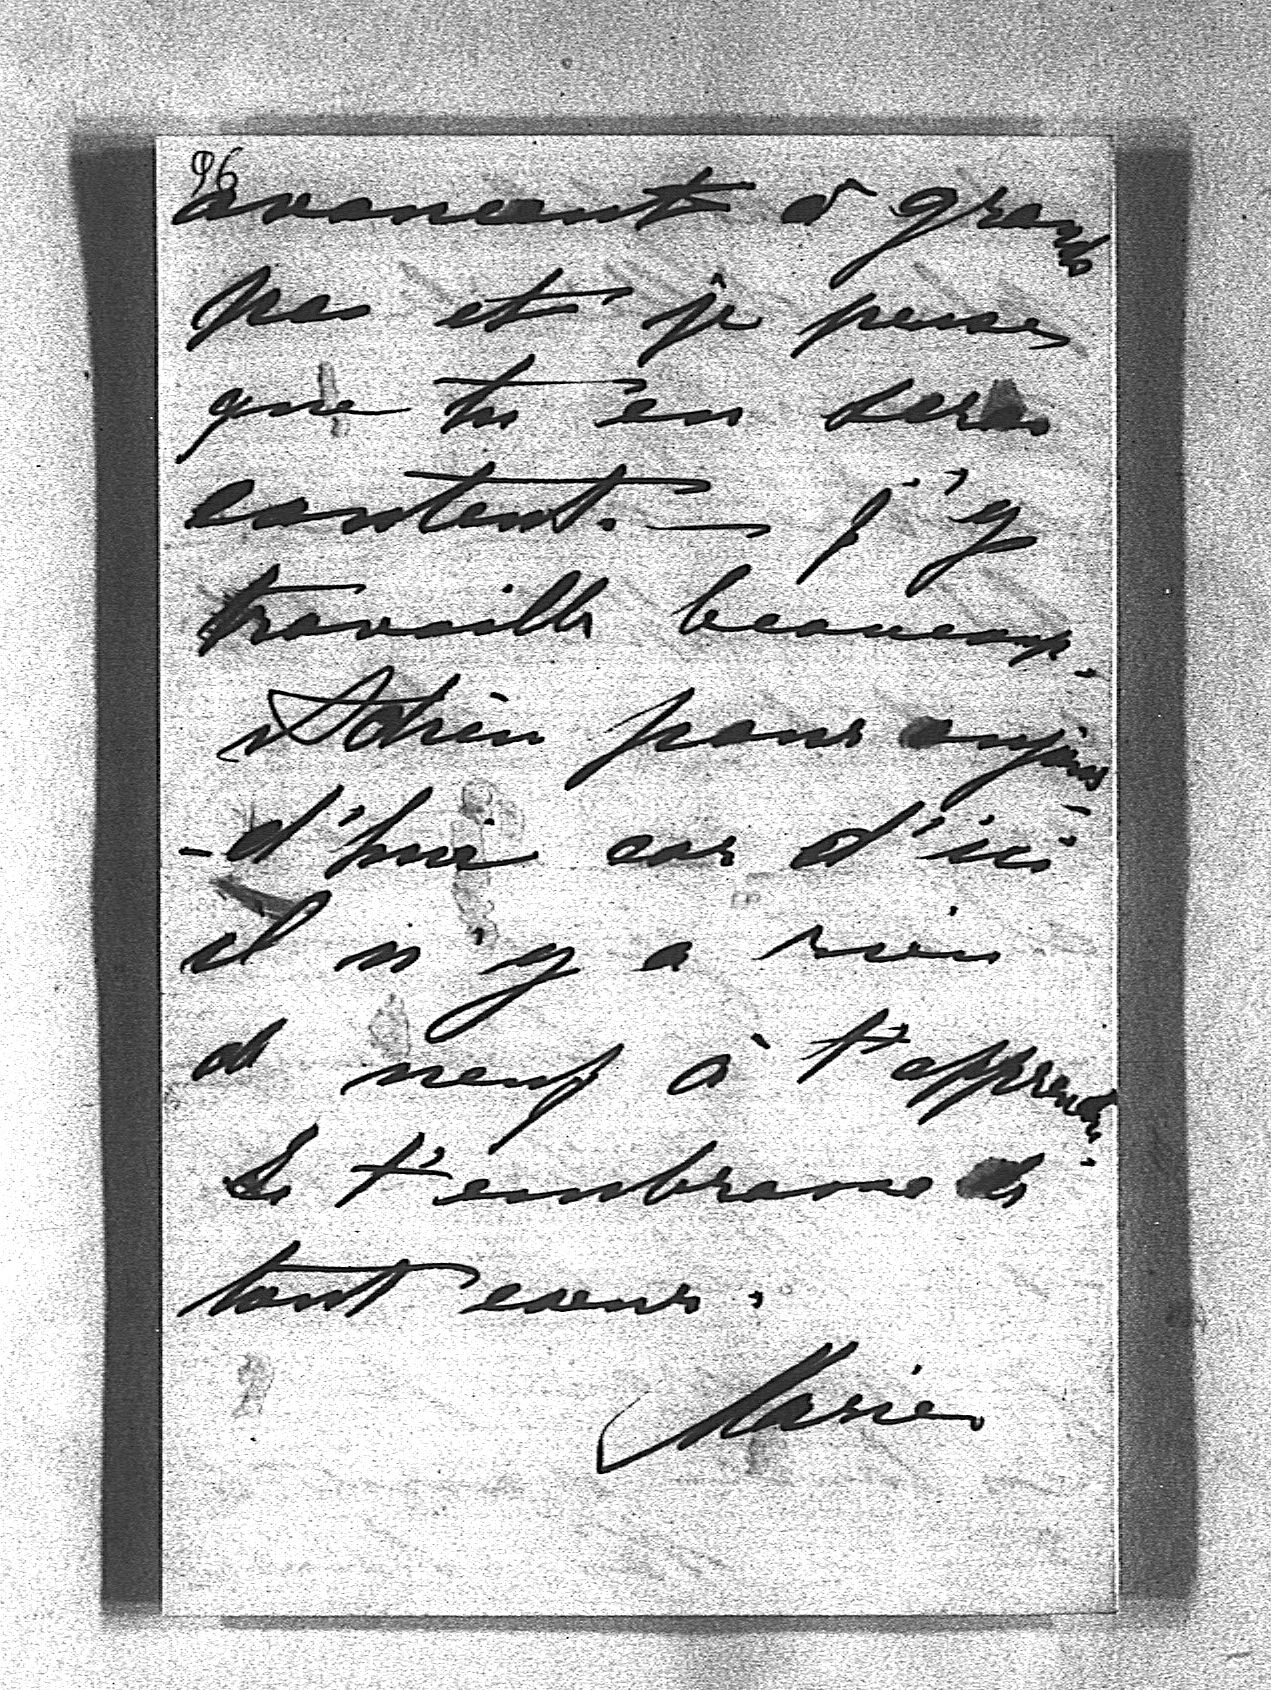 96
avancent à grands
pas et je pense
que tu en seras
content. — J'y
travaille beaucoup.
Adieu pour aujour
-d'hui car d'ici
il n'y a rien
de neuf à t'apprendre.
Je t'embrasse de
tout coeur.
Marie